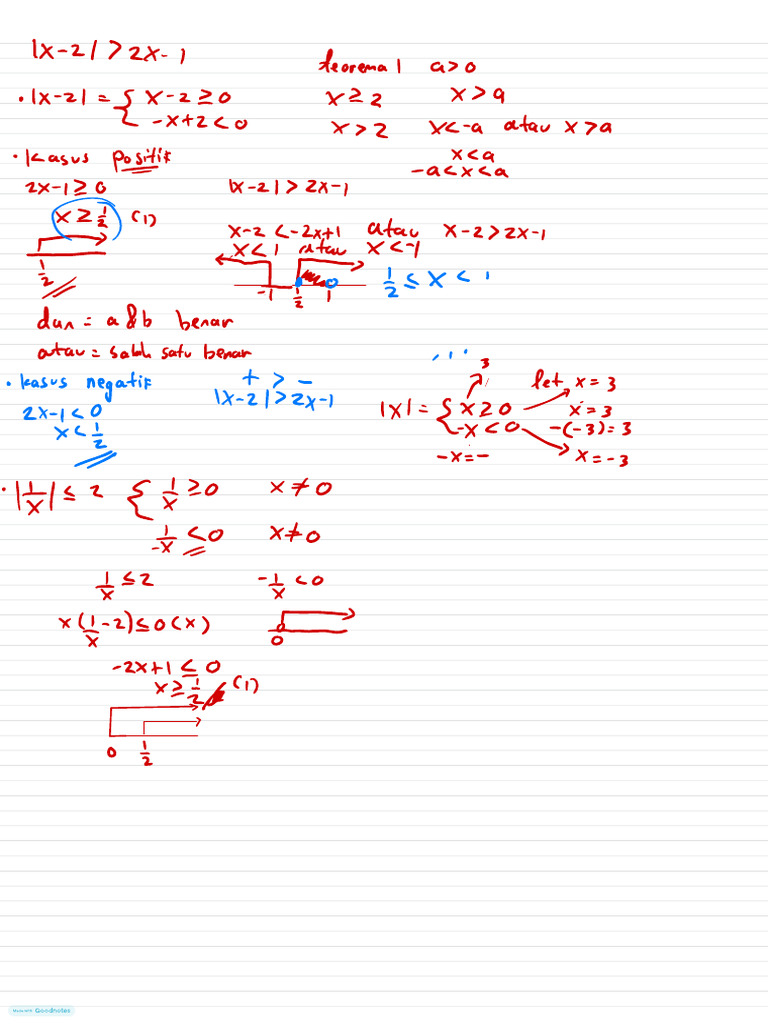 |x-2| > 2x-1
teorema 1 a>0
• |x-2| = { x-2 ≥ 0
-x+2 < 0
x ≥ 2 x > a
x > 2 x<-a atau x>a
x<a
-a<x<a
• kasus positif
2x-1 ≥ 0
x ≥ 1/2 (1)
1/2
|x-2| > 2x-1
x-2 < -2x+1 atau x-2 > 2x-1
x < 1 atau x < -1
-1 1/2 1
1/2 ≤ x < 1
dan = a & b benar
atau = salah satu benar
• kasus negatif
2x-1 < 0
x < 1/2
+ > -
|x-2| > 2x-1
3
|x| = { x ≥ 0
-x < 0
-x = -
let x = 3
x = 3
-(-3) = 3
x = -3
• |1/x| ≤ 2 { 1/x ≥ 0 x ≠ 0
1/-x < 0 x ≠ 0
1/x ≤ 2 -1/x < 0
x(1/x - 2) ≤ 0(x)
0
-2x+1 ≤ 0
x ≥ 1/2 (1)
0 1/2
Made with Goodnotes